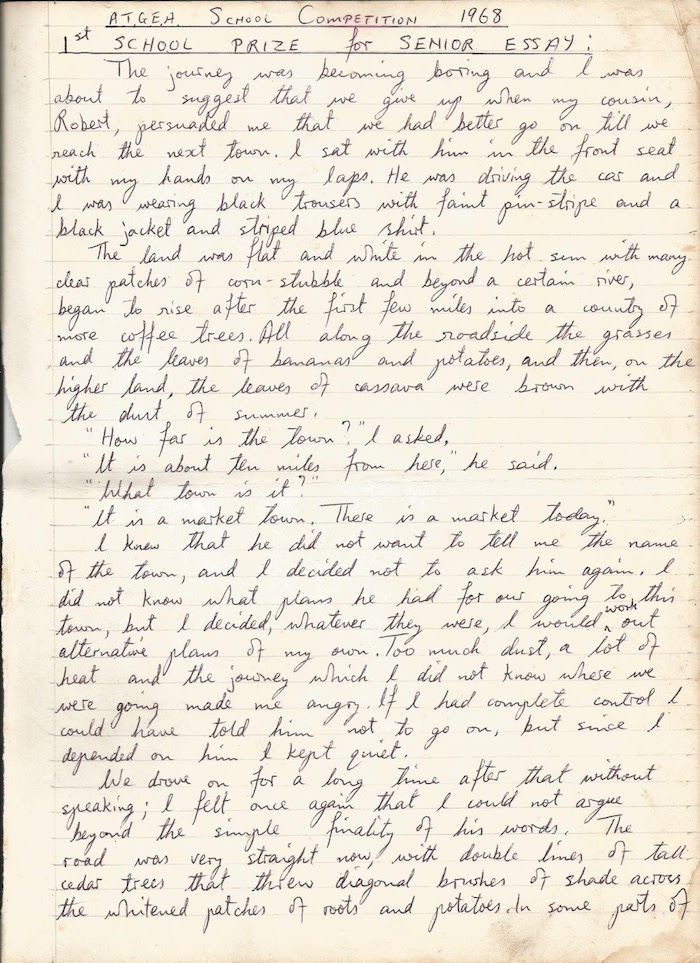 A.T.G.E.A. SCHOOL COMPETITION 1968
1st SCHOOL PRIZE for SENIOR ESSAY:
The journey was becoming boring and I was
about to suggest that we give up when my cousin,
Robert, persuaded me that we had better go on till we
reach the next town. I sat with him in the front seat
with my hands on my laps. He was driving the car and
I was wearing black trousers with faint pin-stripe and a
black jacket and striped blue shirt.
The land was flat and white in the hot sun with many
clear patches of corn-stubble and beyond a certain river,
began to rise after the first few miles into a country of
more coffee trees. All along the roadside the grasses
and the leaves of bananas and potatoes, and then, on the
higher land, the leaves of cassava were brown with
the dust of summer.
"How far is the town?" I asked,
"It is about ten miles from here," he said.
"What town is it?"
"It is a market town. There is a market today."
I knew that he did not want to tell me the name
of the town, and I decided not to ask him again. I
did not know what plans he had for our going to this
town, but I decided, whatever they were, I would work out
alternative plans of my own. Too much dust, a lot of
heat and the journey which I did not know where we
were going made me angry. If I had complete control I
could have told him not to go on, but since I
depended on him I kept quiet.
We drove on for a long time after that without
speaking; I felt once again that I could not argue
beyond the simple finality of his words. The
road was very straight now, with double lines of tall
cedar trees that threw diagonal brushes of shade across
the whitened patches of roots and potatoes. In some parts of